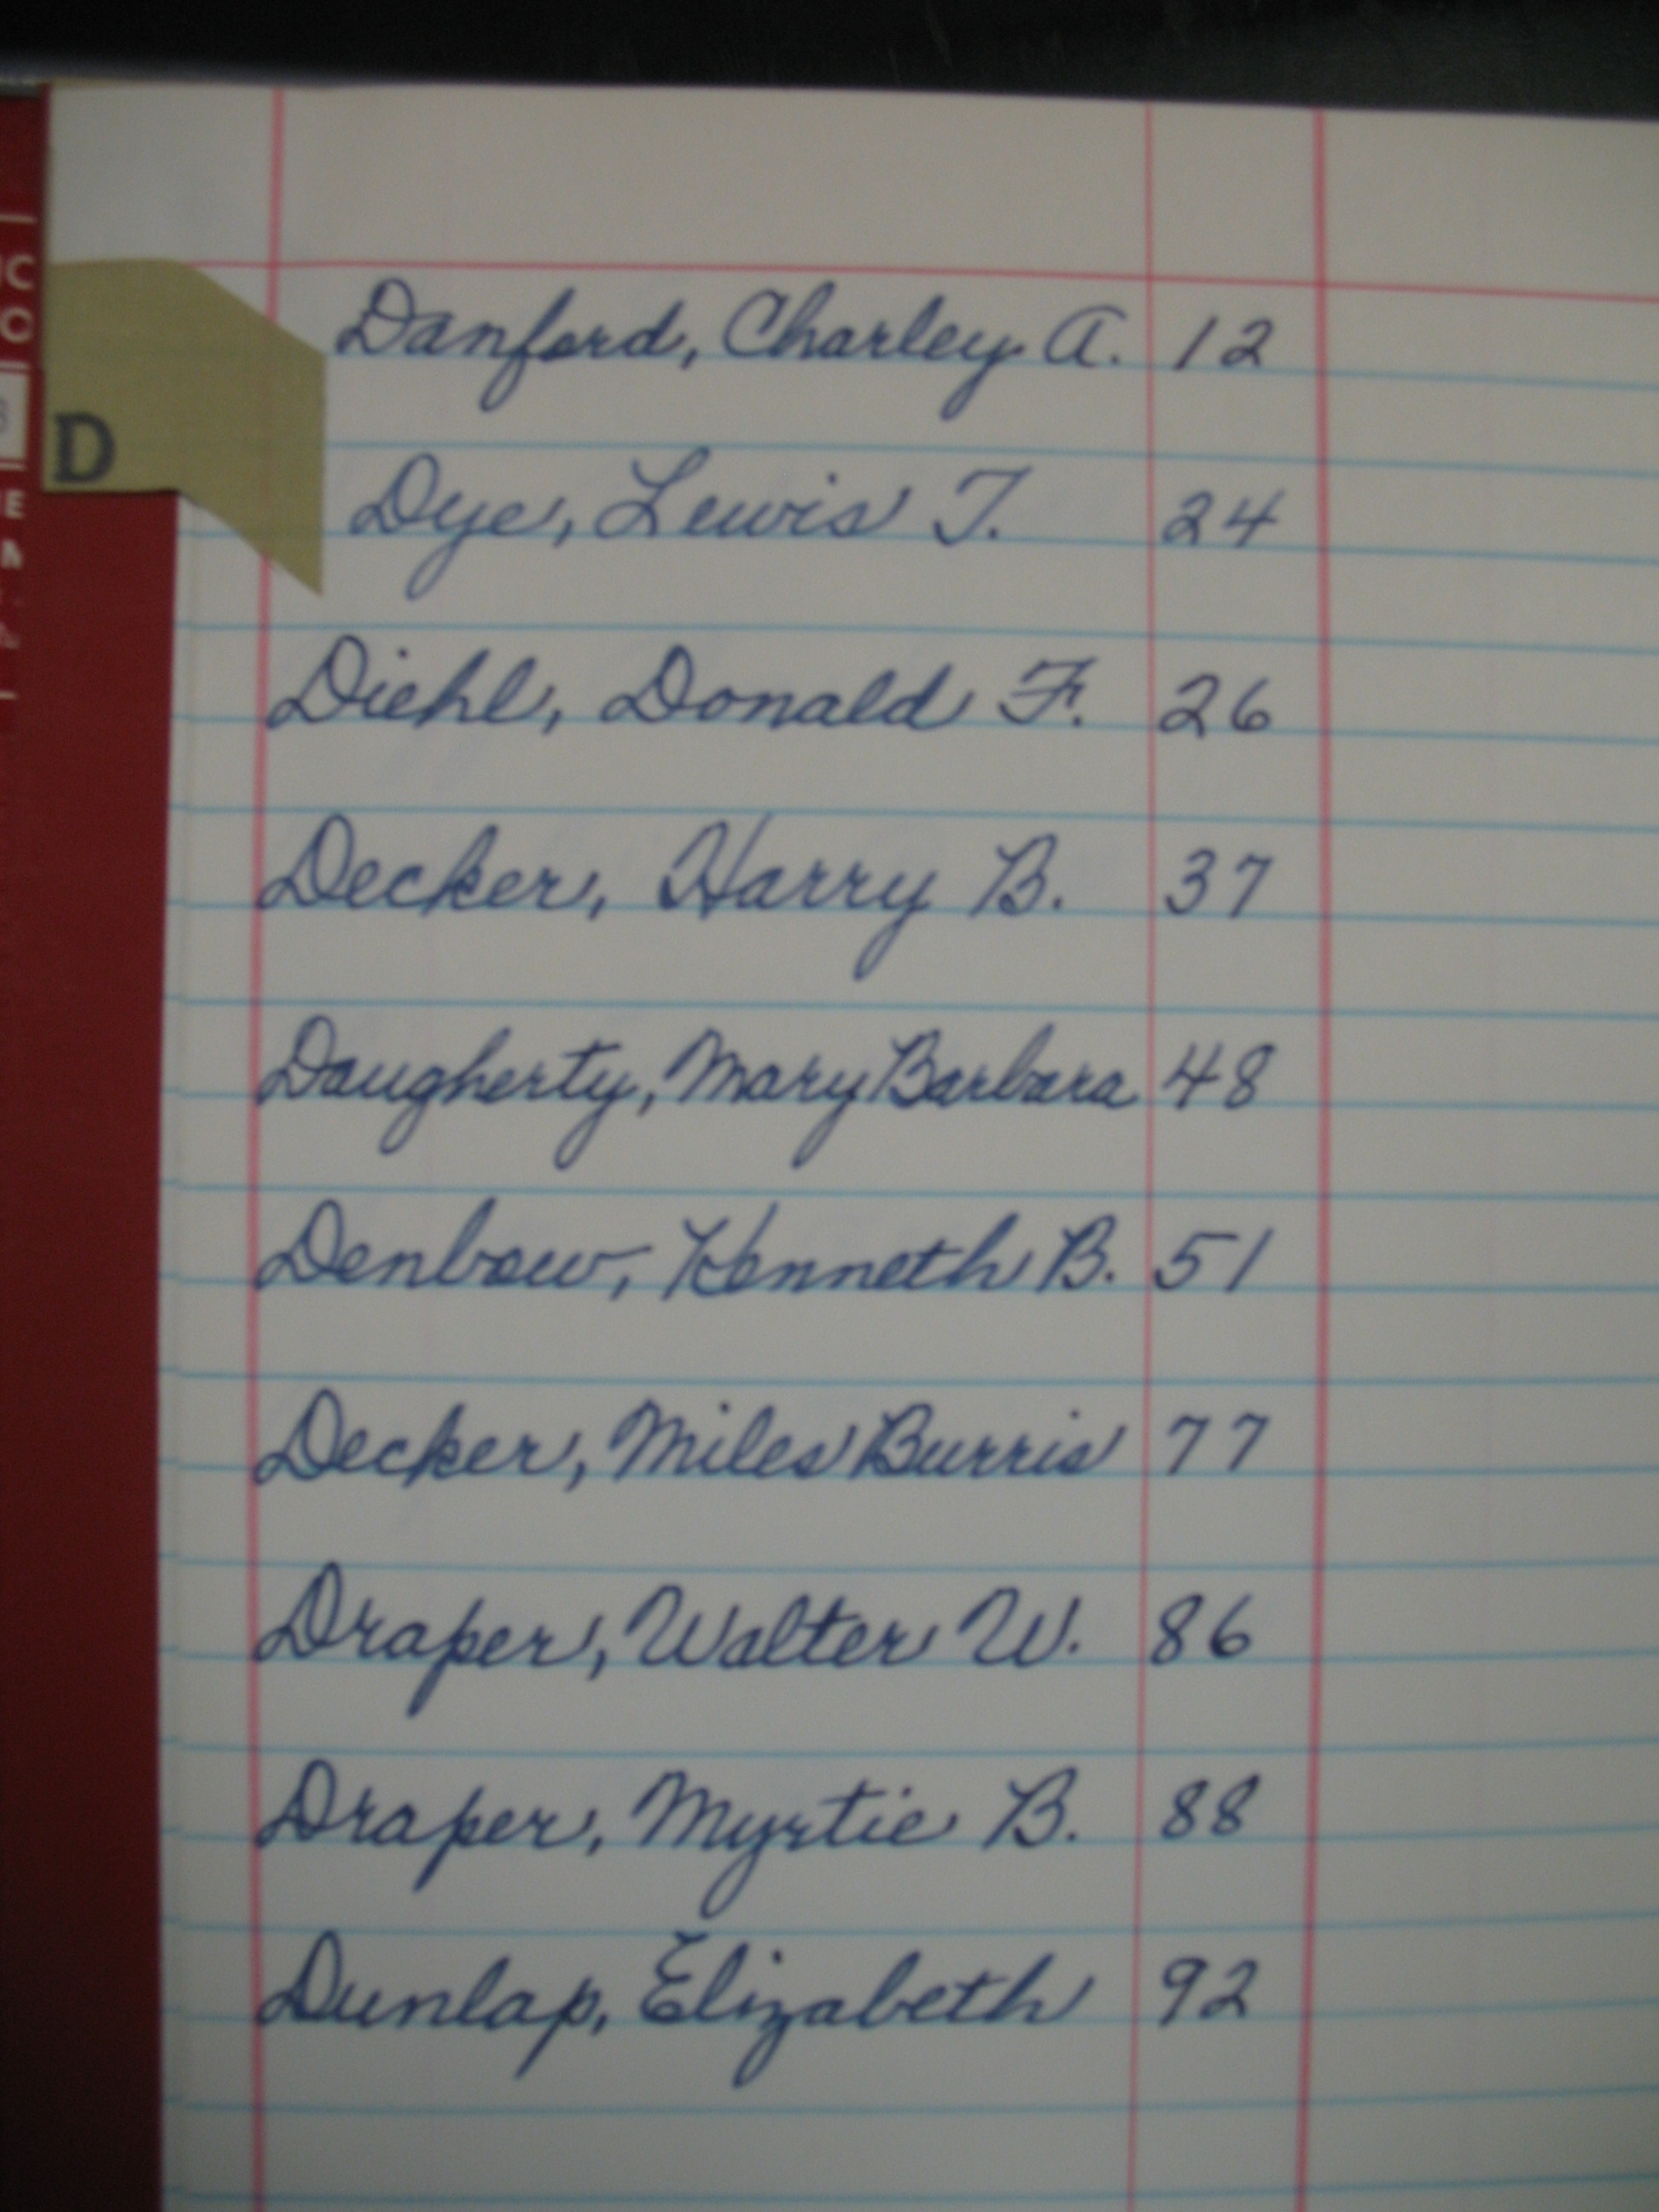 D
Danford, Charley A. 12
Dye, Lewis T. 24
Diehl, Donald F. 26
Decker, Harry B. 37
Daugherty, Mary Barbara 48
Denbow, Kenneth B. 51
Decker, Miles Burris 77
Draper, Walter W. 86
Draper, Myrtie B. 88
Dunlap, Elizabeth 92